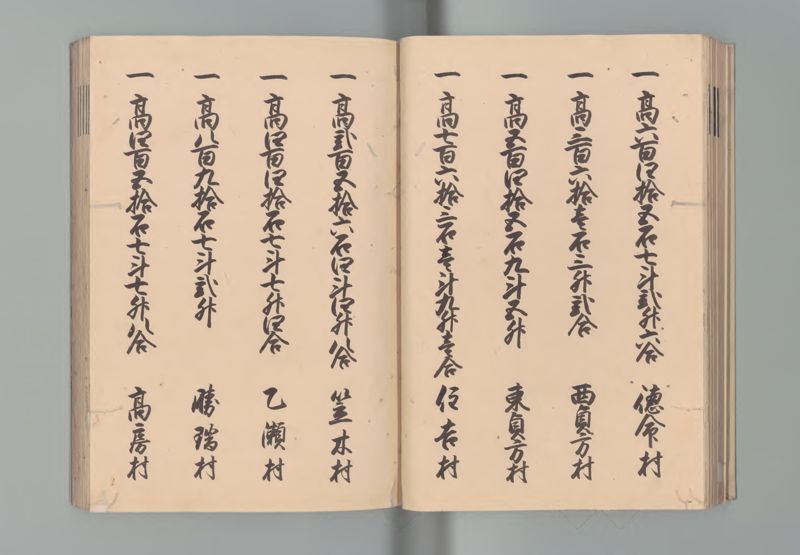 一 高六百四拾五石七斗弐升六合 徳命村
一 高三百六拾壱石三升弐合 西貞方村
一 高五百四拾五石九斗五升 東貞方村
一 高七百六拾三石壱斗九升壱合 住吉村
一 高弐百五拾六石四斗四升八合 笠木村
一 高四百四拾石七斗七升四合 乙瀬村
一 高八百九拾石七斗弐升 勝瑞村
一 高四百五拾石七斗七升八合 高房村